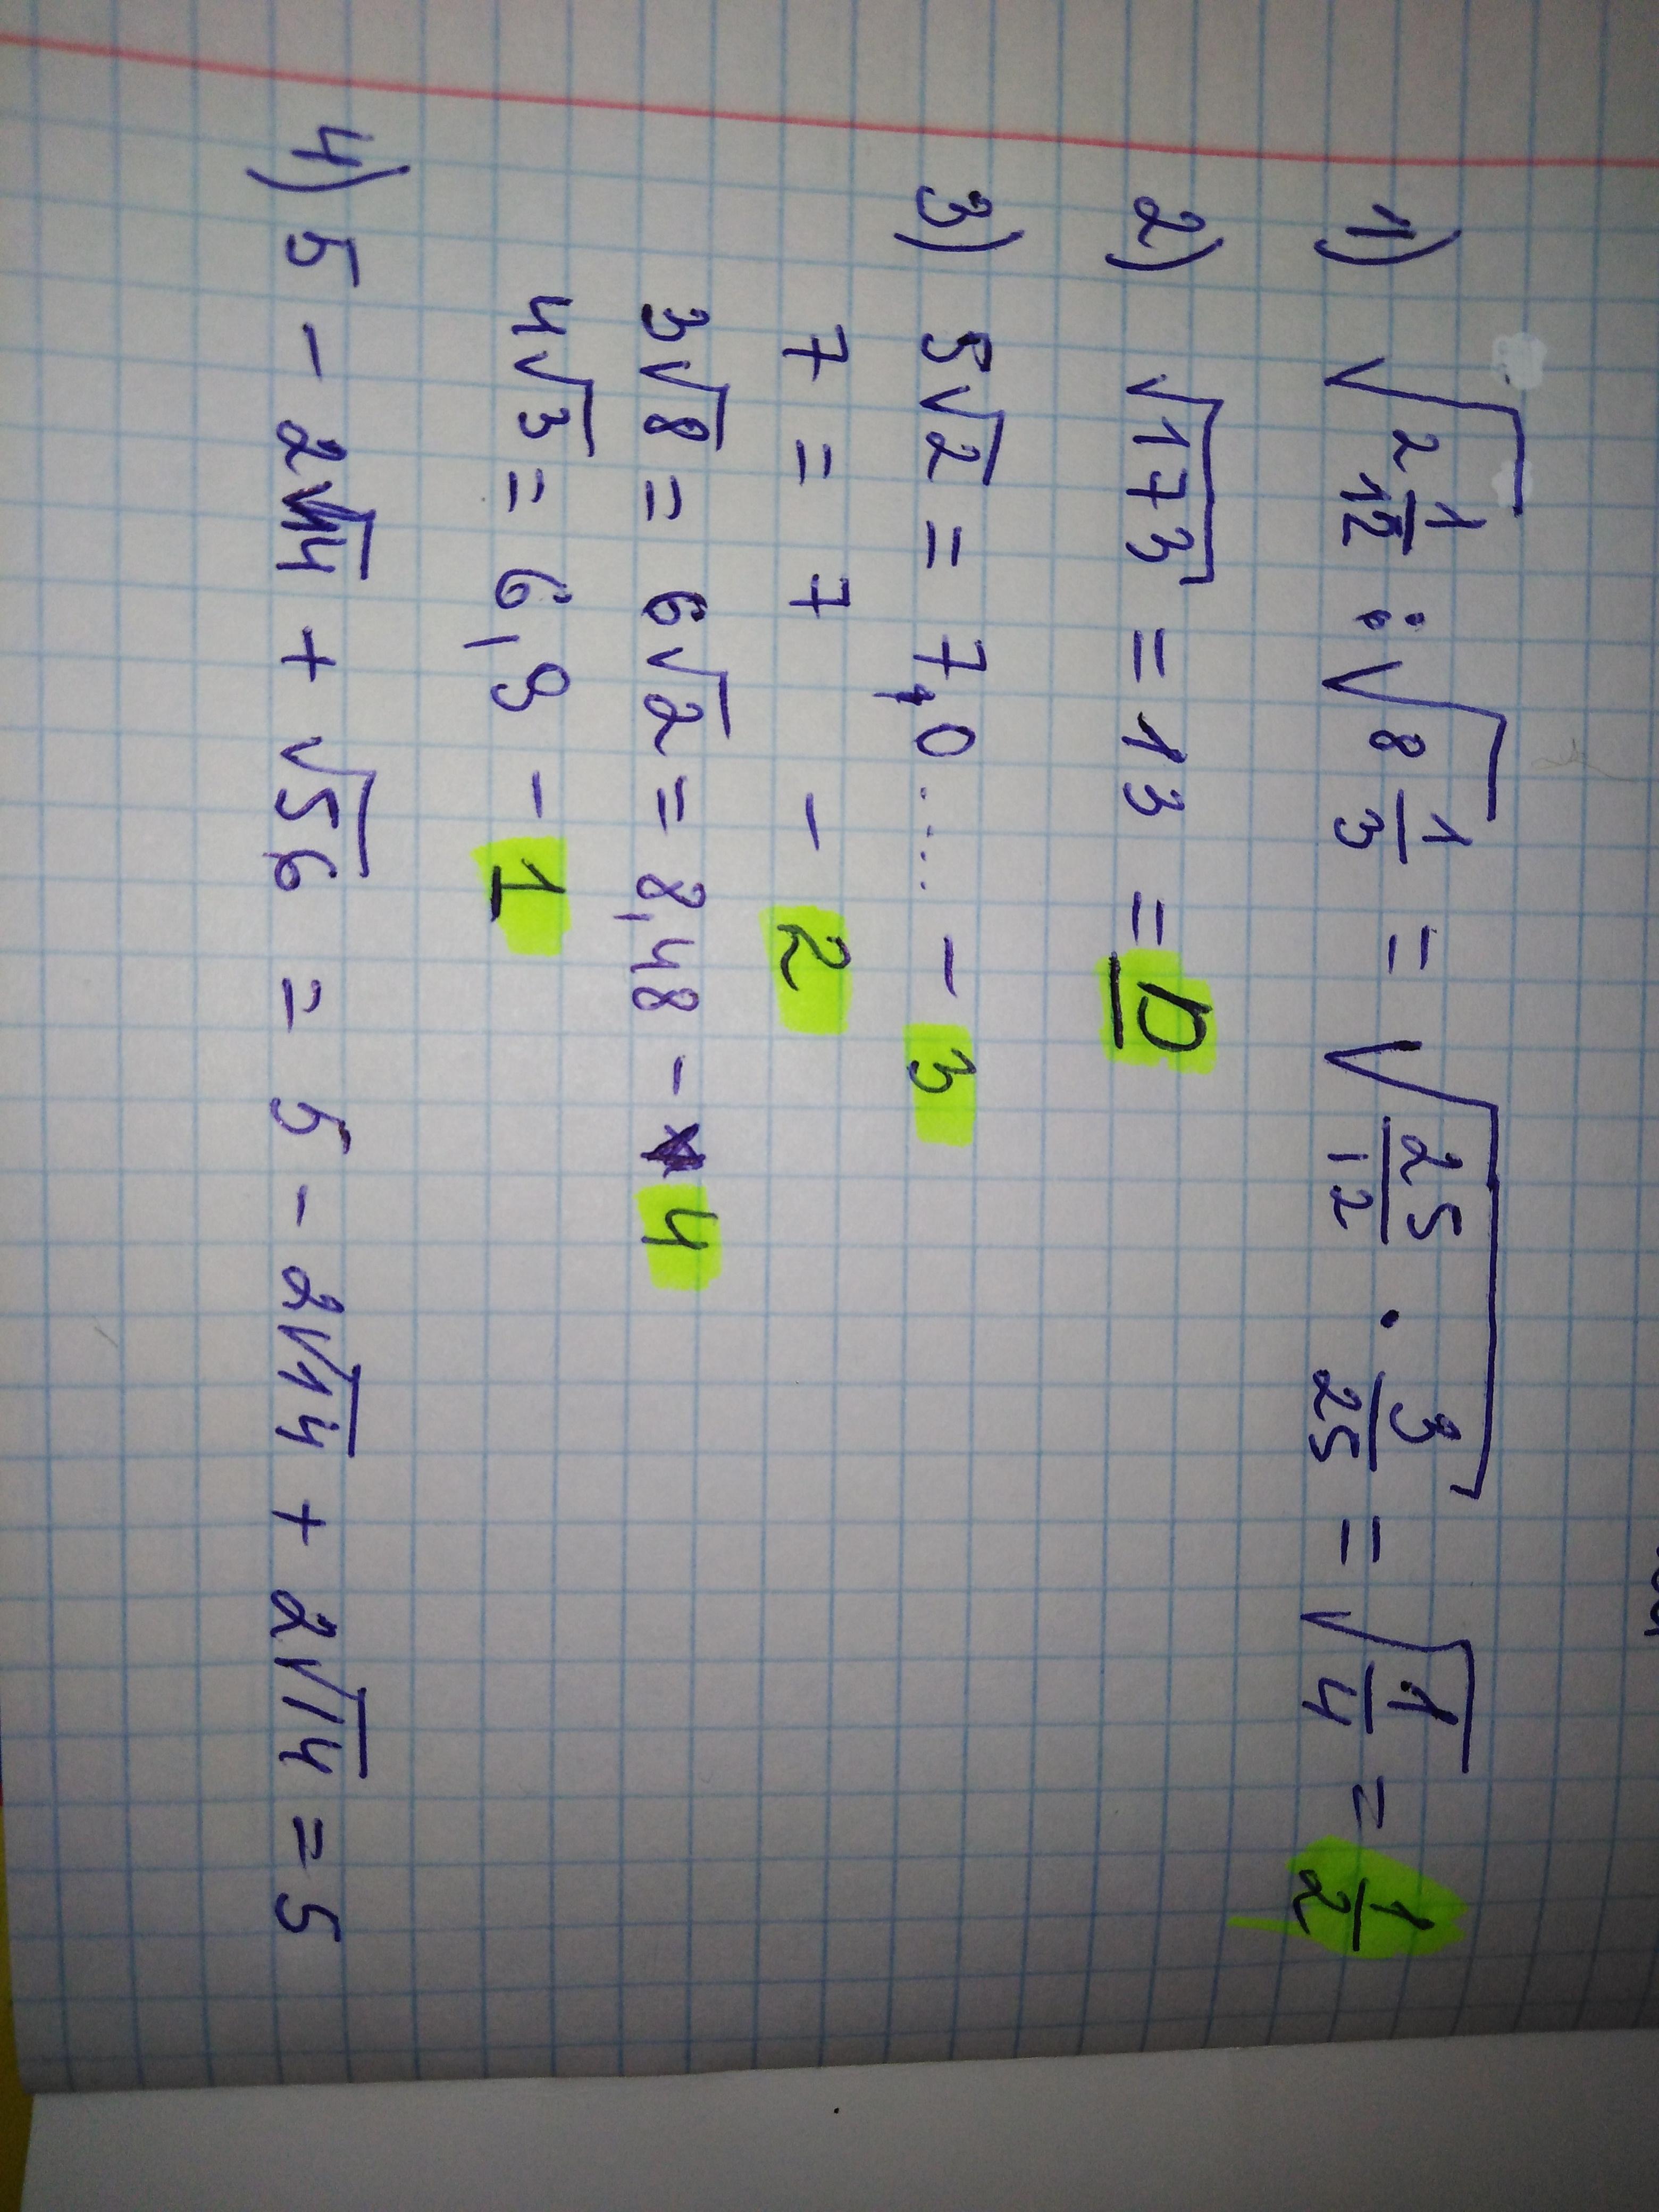 1) √2 1/12 : √8 1/3 = √25/12 · 3/25 = √1/4 = 1/2
2) √173 = 13 = D
3) 5√2 = 7,0..... - 3
7 = 7 - 2
3√8 = 6√2 = 8,48 - 4
4√3 = 6,9 - 1
4) 5 - 2√14 + √56 = 5 - 2√14 + 2√14 = 5